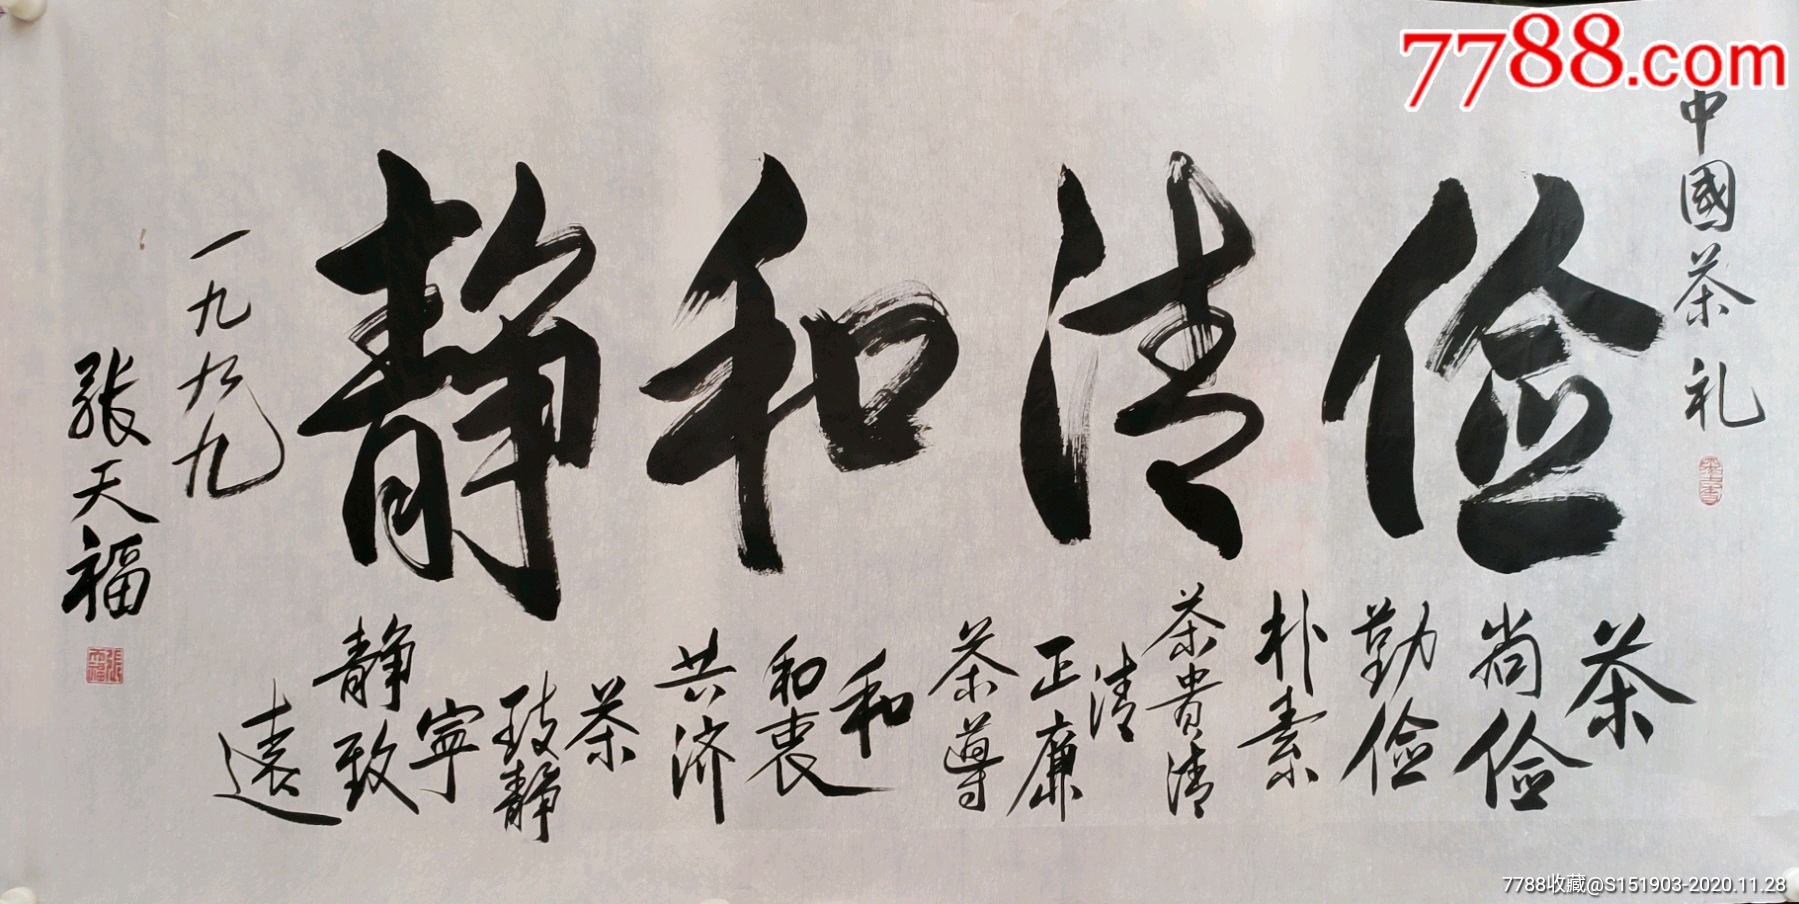 7788.com
中國茶礼
俭清和静
茶
尚俭
勤俭
朴素
茶貴清
清
正廉
茶導
和
和衷
共济
茶
致静
宁
静致
遠
一九九九
張天福
7788收藏@S151903-2020.11.28